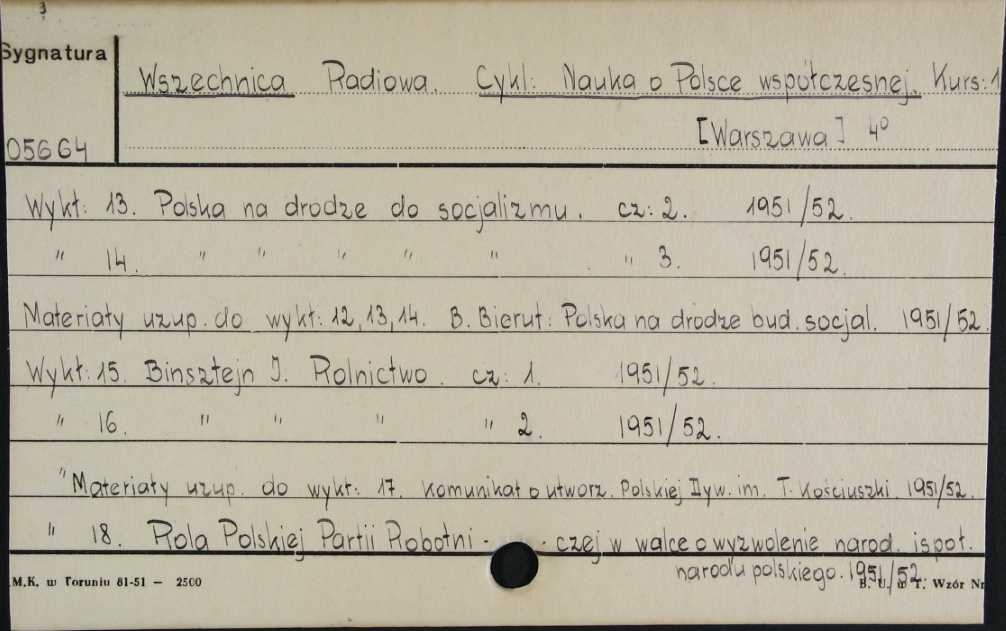 Sygnatura
Wszechnica Radiowa. Cykl: Nauka o Polsce współczesnej. Kurs: 1
[Warszawa] 4°
05664
Wykł: 13. Polska na drodze do socjalizmu. cz: 2. 1951/52.
" 14. " " " " " " 3. 1951/52.
Materiały uzup. do wykł: 12, 13, 14. B. Bierut: Polska na drodze bud. socjal. 1951/52.
Wykł: 15. Binsztejn J. Rolnictwo. cz: 1. 1951/52.
" 16. " " " " 2. 1951/52.
" Materiały uzup. do wykł: 17. Komunikat o utworz. Polskiej Dyw. im. T. Kościuszki. 1951/52.
" 18. Rola Polskiej Partii Robotni - czej w walce o wyzwolenie narod. i społ.
narodu polskiego. 1951/52.
M.K. w Toruniu 81-51 — 2500
B. U. w T. Wzór Nr